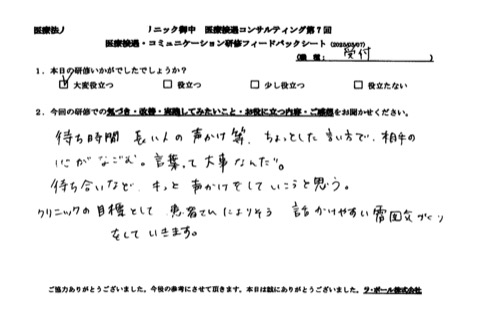 医療法人 リニック御中 医療接遇コンサルティング第7回
医療接遇・コミュニケーション研修フィードバックシート (2023/03/07)
(職種: 受付 )
1．本日の研修いかがでしたでしょうか？
☑ 大変役立つ □ 役立つ □ 少し役立つ □ 役立たない
2．今回の研修での気づき・改善・実践してみたいこと・お役に立つ内容・ご感想をお聞かせください。
待ち時間 長い人の声かけ等、ちょっとした言い方で、相手の
心がなごむ。言葉って大事なんだ。
待ち合いなど、もっと声かけをしていこうと思う。
クリニックの目標として 患者さんによりそう 話しかけやすい雰囲気づくり
をしていきます。
ご協力ありがとうございました。今後の参考にさせて頂きます。本日は誠にありがとうございました。ラ・ポール株式会社